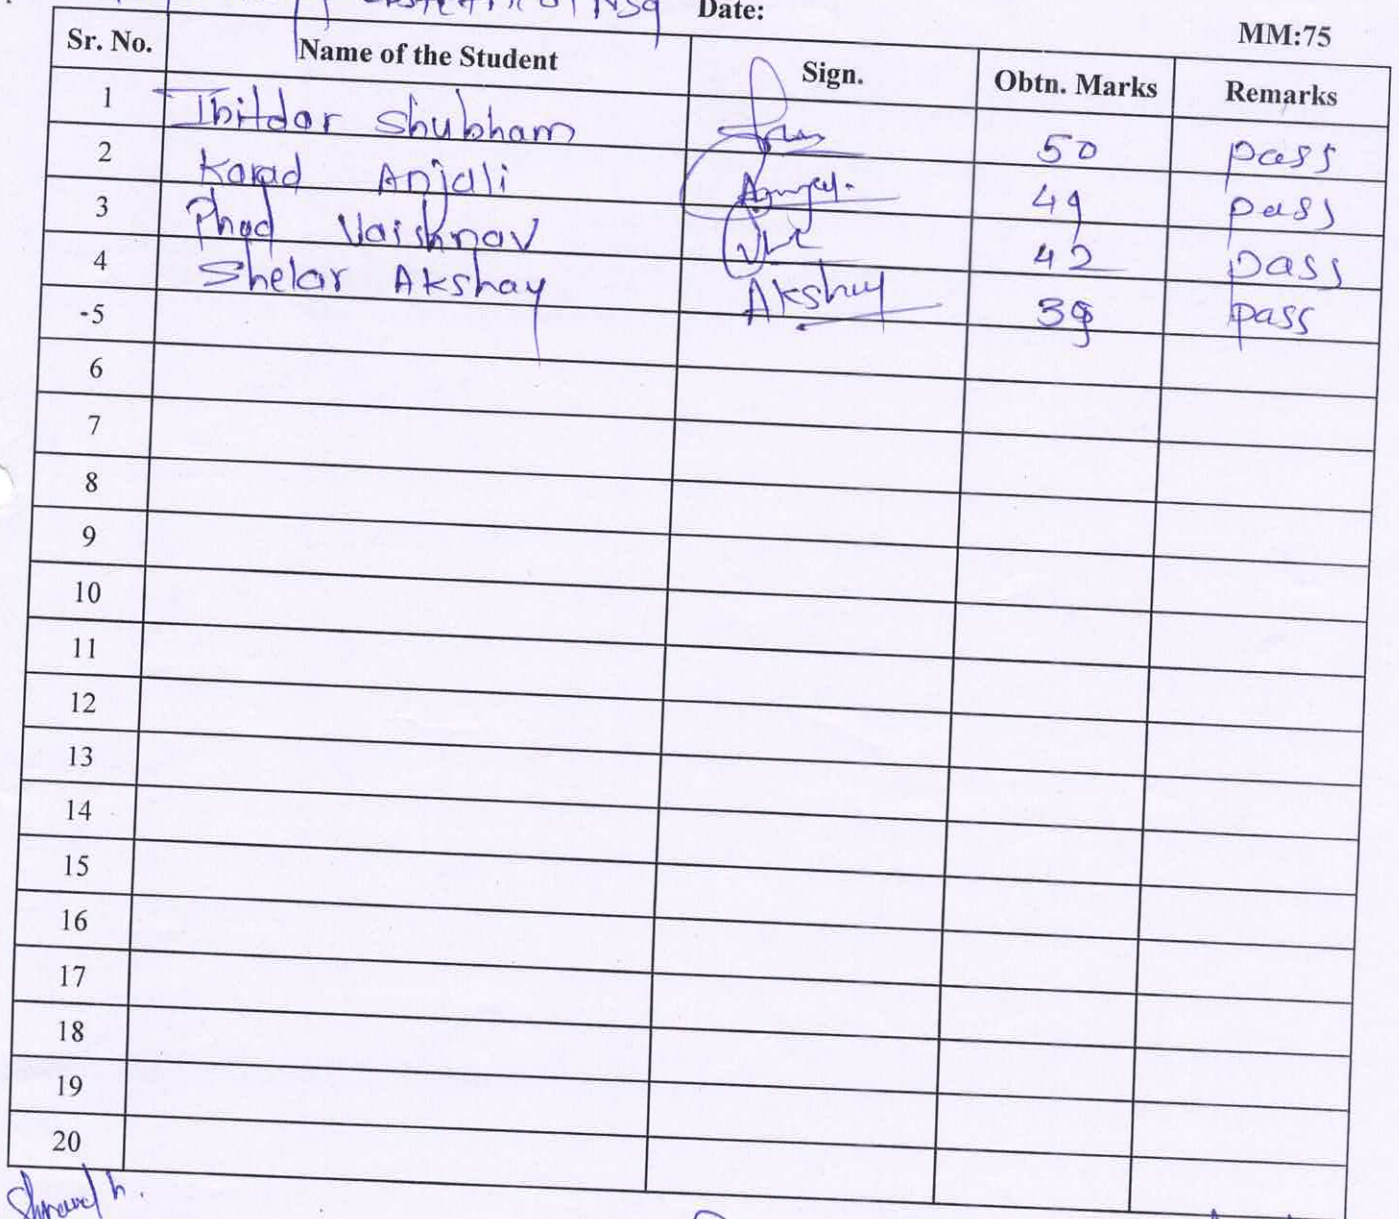 Date:
MM:75
Sr. No. Name of the Student Sign. Obtn. Marks Remarks
1 Ibitdar Shubham 50 pass
2 Karad Anjali 49 pass
3 Phad Vaishnav 42 pass
4 Shelar Akshay Akshay 39 pass
-5
6
7
8
9
10
11
12
13
14
15
16
17
18
19
20